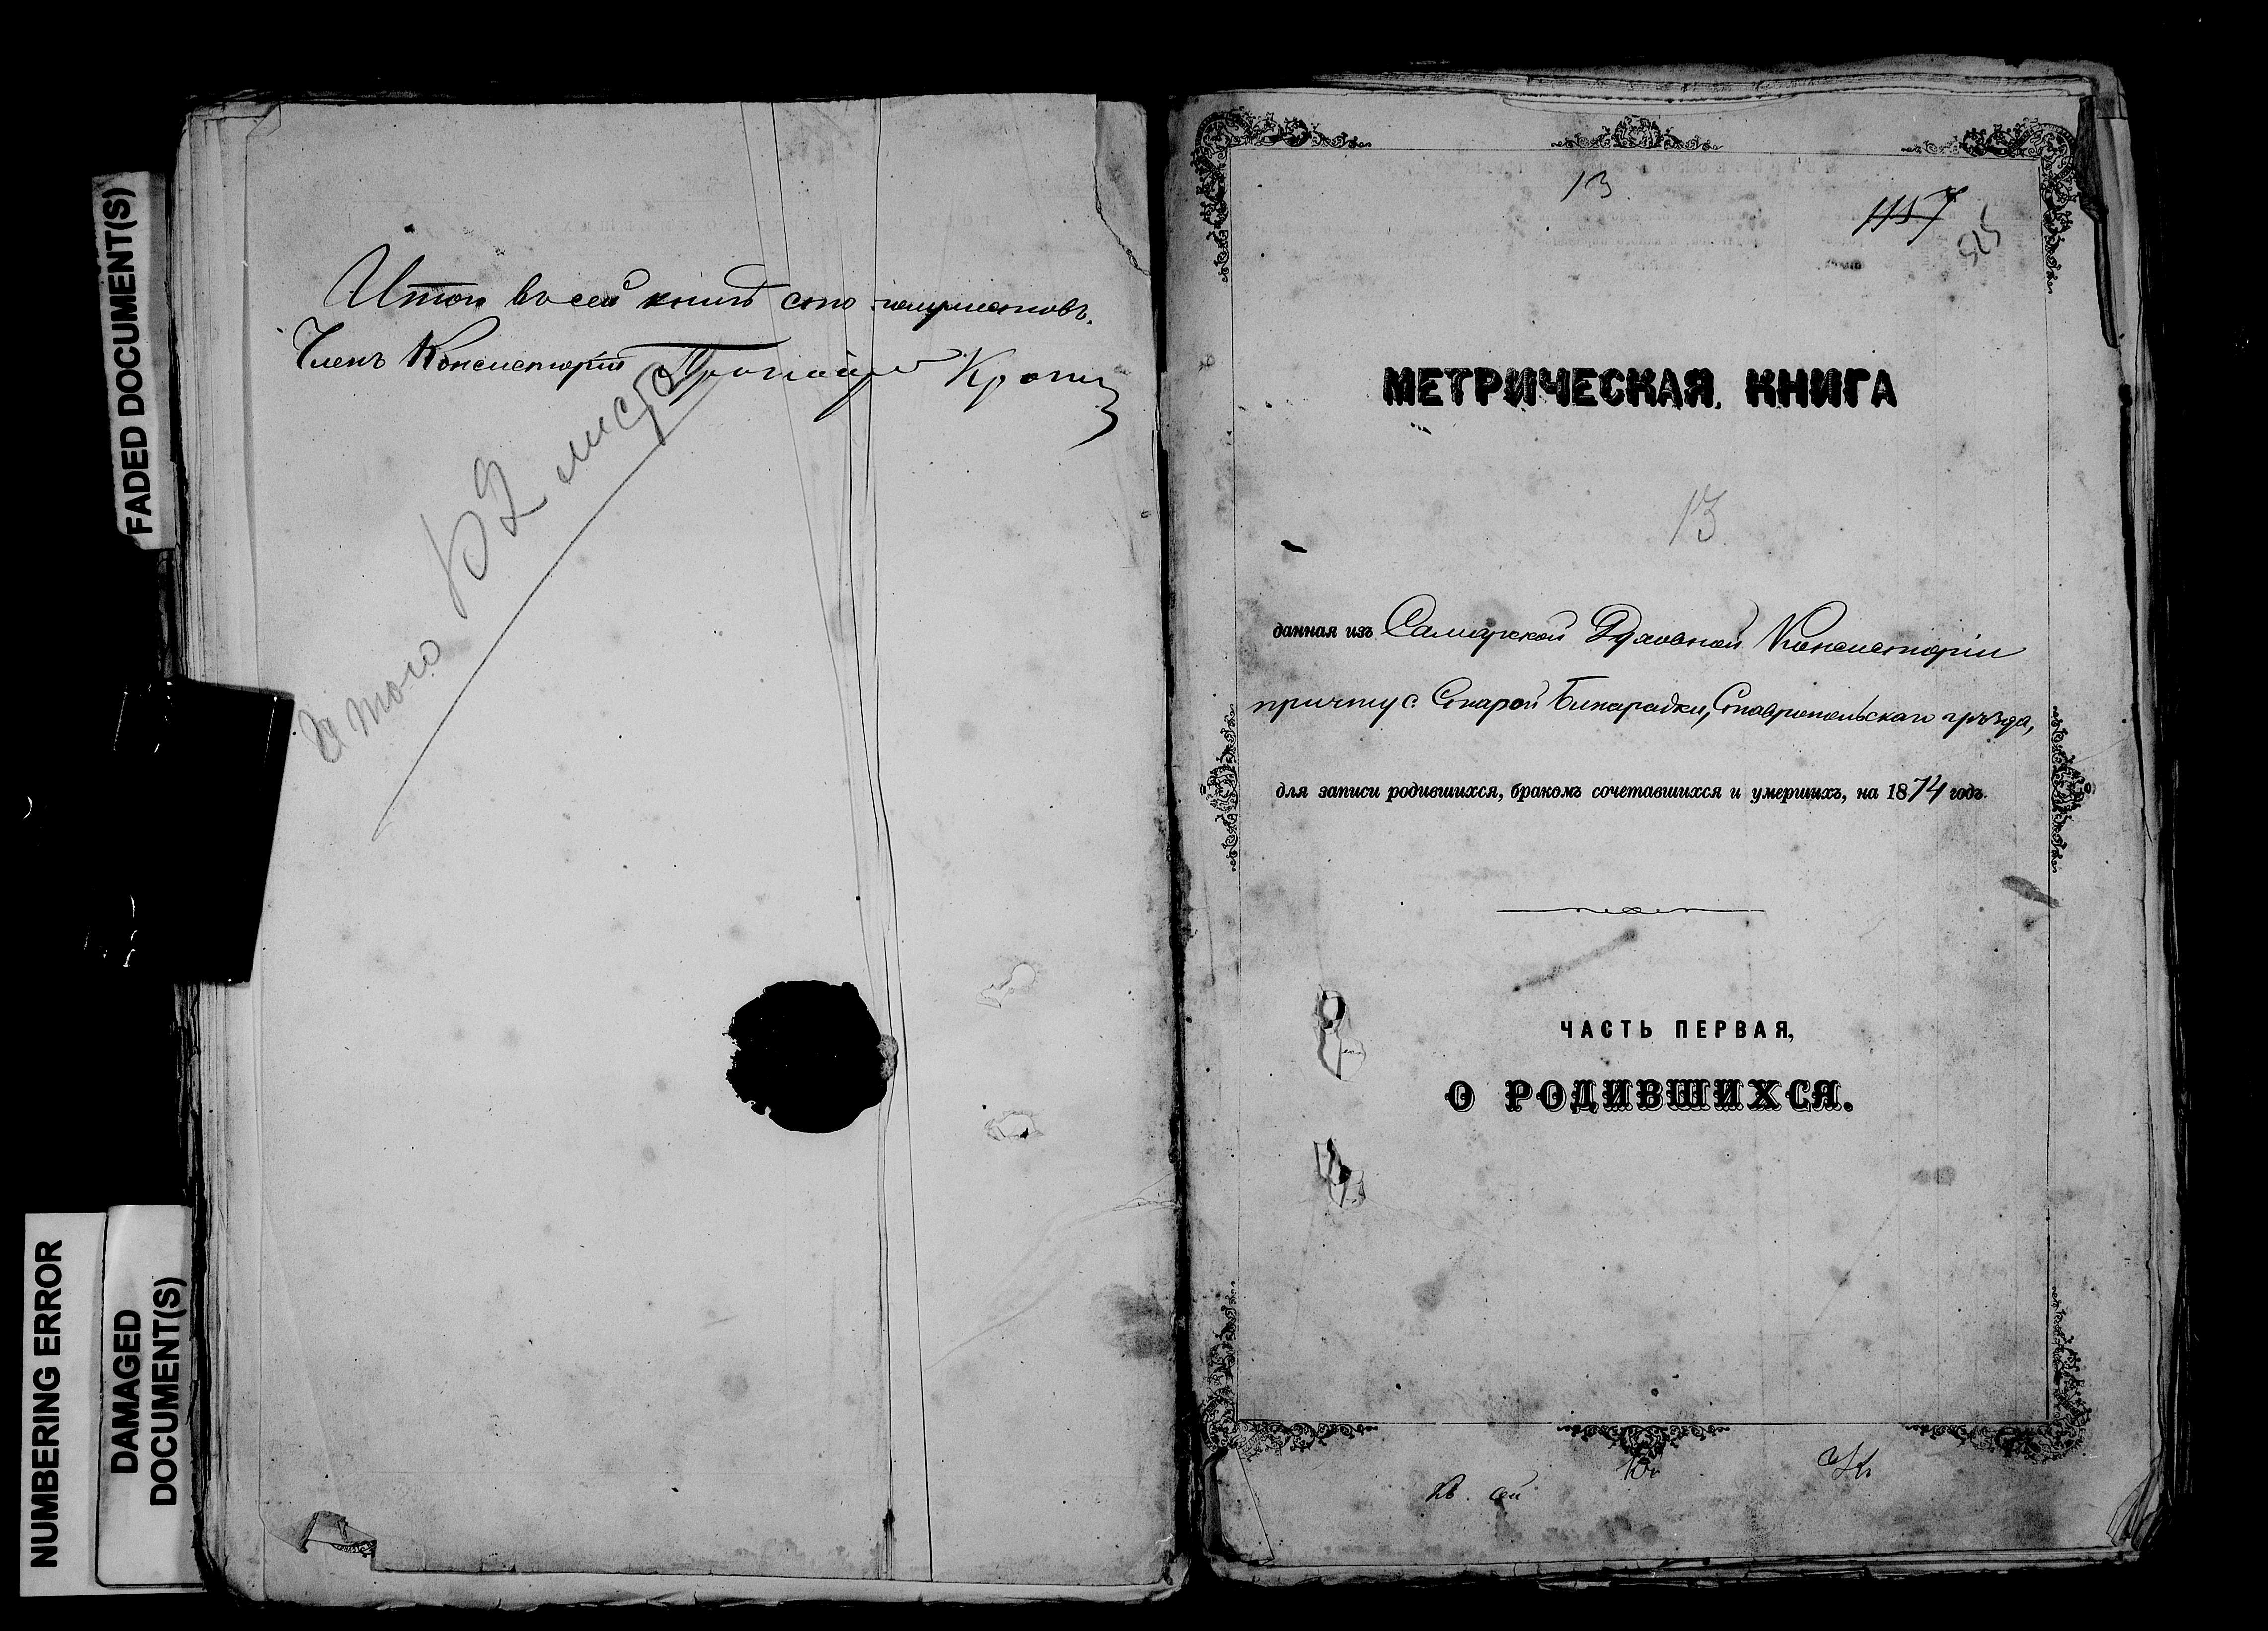 FADED DOCUMENT(S)
NUMBERING ERROR
DAMAGED
DOCUMENT(S)
Итого въ сей книгѣ сто полулистовъ.
Членъ Консисторіи Протоіерей
Итого 52 листа
13
1157
525
МЕТРИЧЕСКАЯ КНИГА
13
данная изъ Самарской Духовной Консисторіи
причту с. Старой Бинарадки, Ставропольскаго уѣзда,
для записи родившихся, бракомъ сочетавшихся и умершихъ, на 1874 годъ.
ЧАСТЬ ПЕРВАЯ,
О РОДИВШИХСЯ.
Въ сей